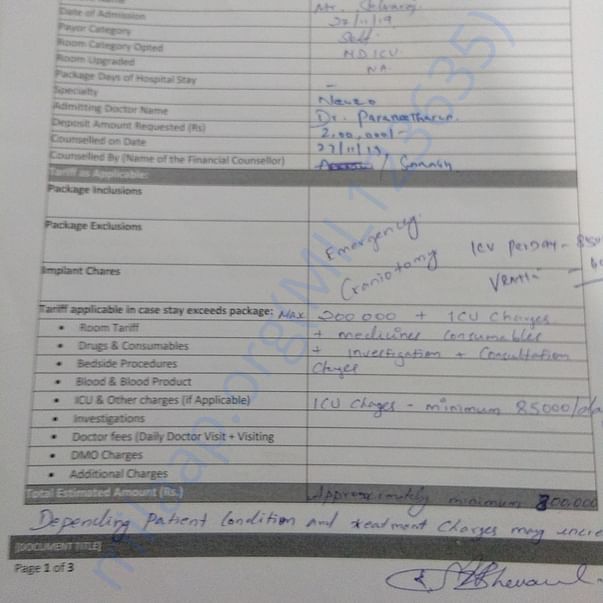 Mr. Selvaraj
Date of Admission 27/11/19
Payor Category Self
Room Category Opted NDICU
Room Upgraded NA
Package Days of Hospital Stay –
Specialty Neuro
Admitting Doctor Name Dr. Paraneetharan.
Deposit Amount Requested (Rs) 2,00,000/-
Counselled on Date 27/11/19
Counselled By (Name of the Financial Counsellor)
Tariff as Applicable:
Package Inclusions
Package Exclusions Emergency
Craniotomy
ICU perday – 850
Implant Chares
Tariff applicable in case stay exceeds package: Max 200000 + ICU Charges
• Room Tariff + medicines consumables
• Drugs & Consumables + Investigation + Consultation
• Bedside Procedures Charges
• Blood & Blood Product
• ICU & Other charges (if Applicable) ICU Chages – minimum 85000/da
• Investigations
• Doctor fees (Daily Doctor Visit + Visiting
• DMO Charges
• Additional Charges
Total Estimated Amount (Rs.) Approximately minimum 800.000
Depending Patient Condition and treatment Charges may incre
[DOCUMENT TITLE]
Page 1 of 3
milaap.org(MIL123635)